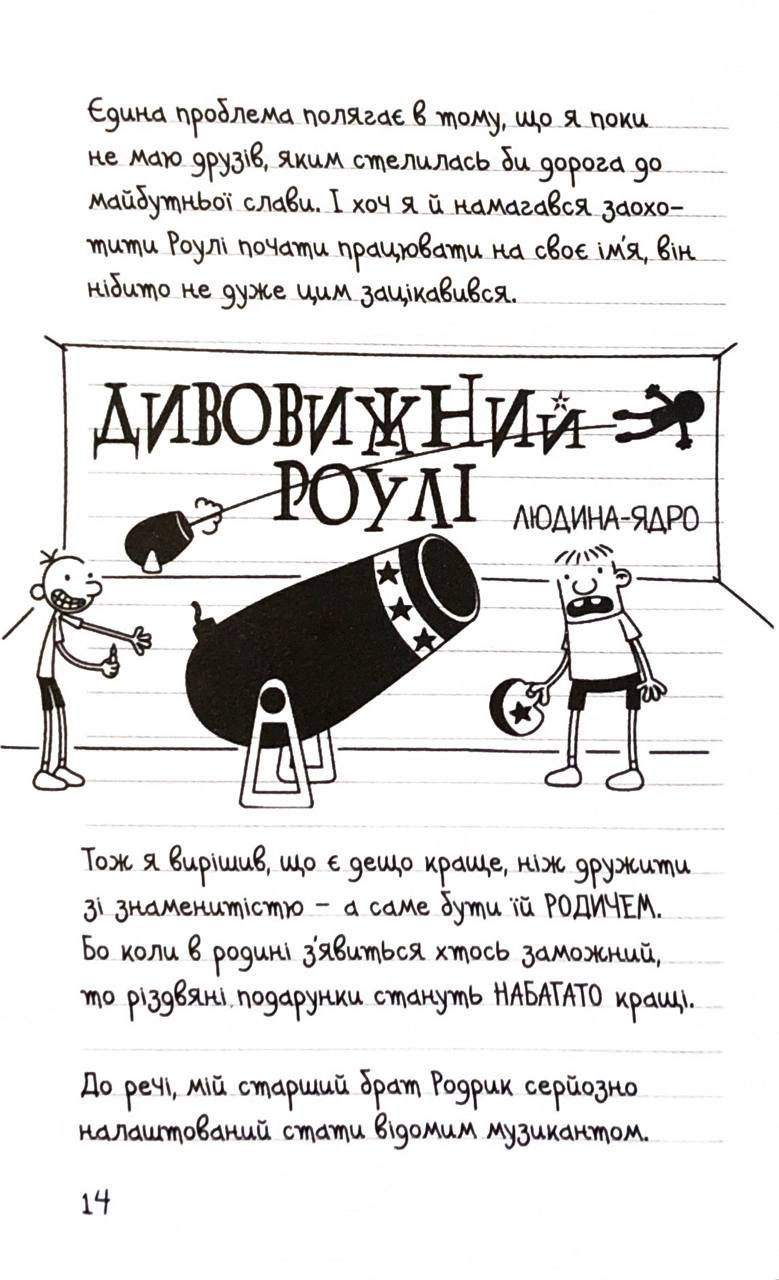 Єдина проблема полягає в тому, що я поки
не маю друзів, яким стелилась би дорога до
майбутньої слави. І хоч я й намагався заохо-
тити Роулі почати працювати на своє ім'я, він
нібито не дуже цим зацікавився.
ДИВОВИЖНИЙ
РОУЛІ
ЛЮДИНА-ЯДРО
Тож я вирішив, що є дещо краще, ніж дружити
зі знаменитістю – а саме бути їй РОДИЧЕМ.
Бо коли в родині з'явиться хтось заможний,
то різдвяні подарунки стануть НАБАГАТО кращі.
До речі, мій старший брат Родрик серйозно
налаштований стати відомим музикантом.
14